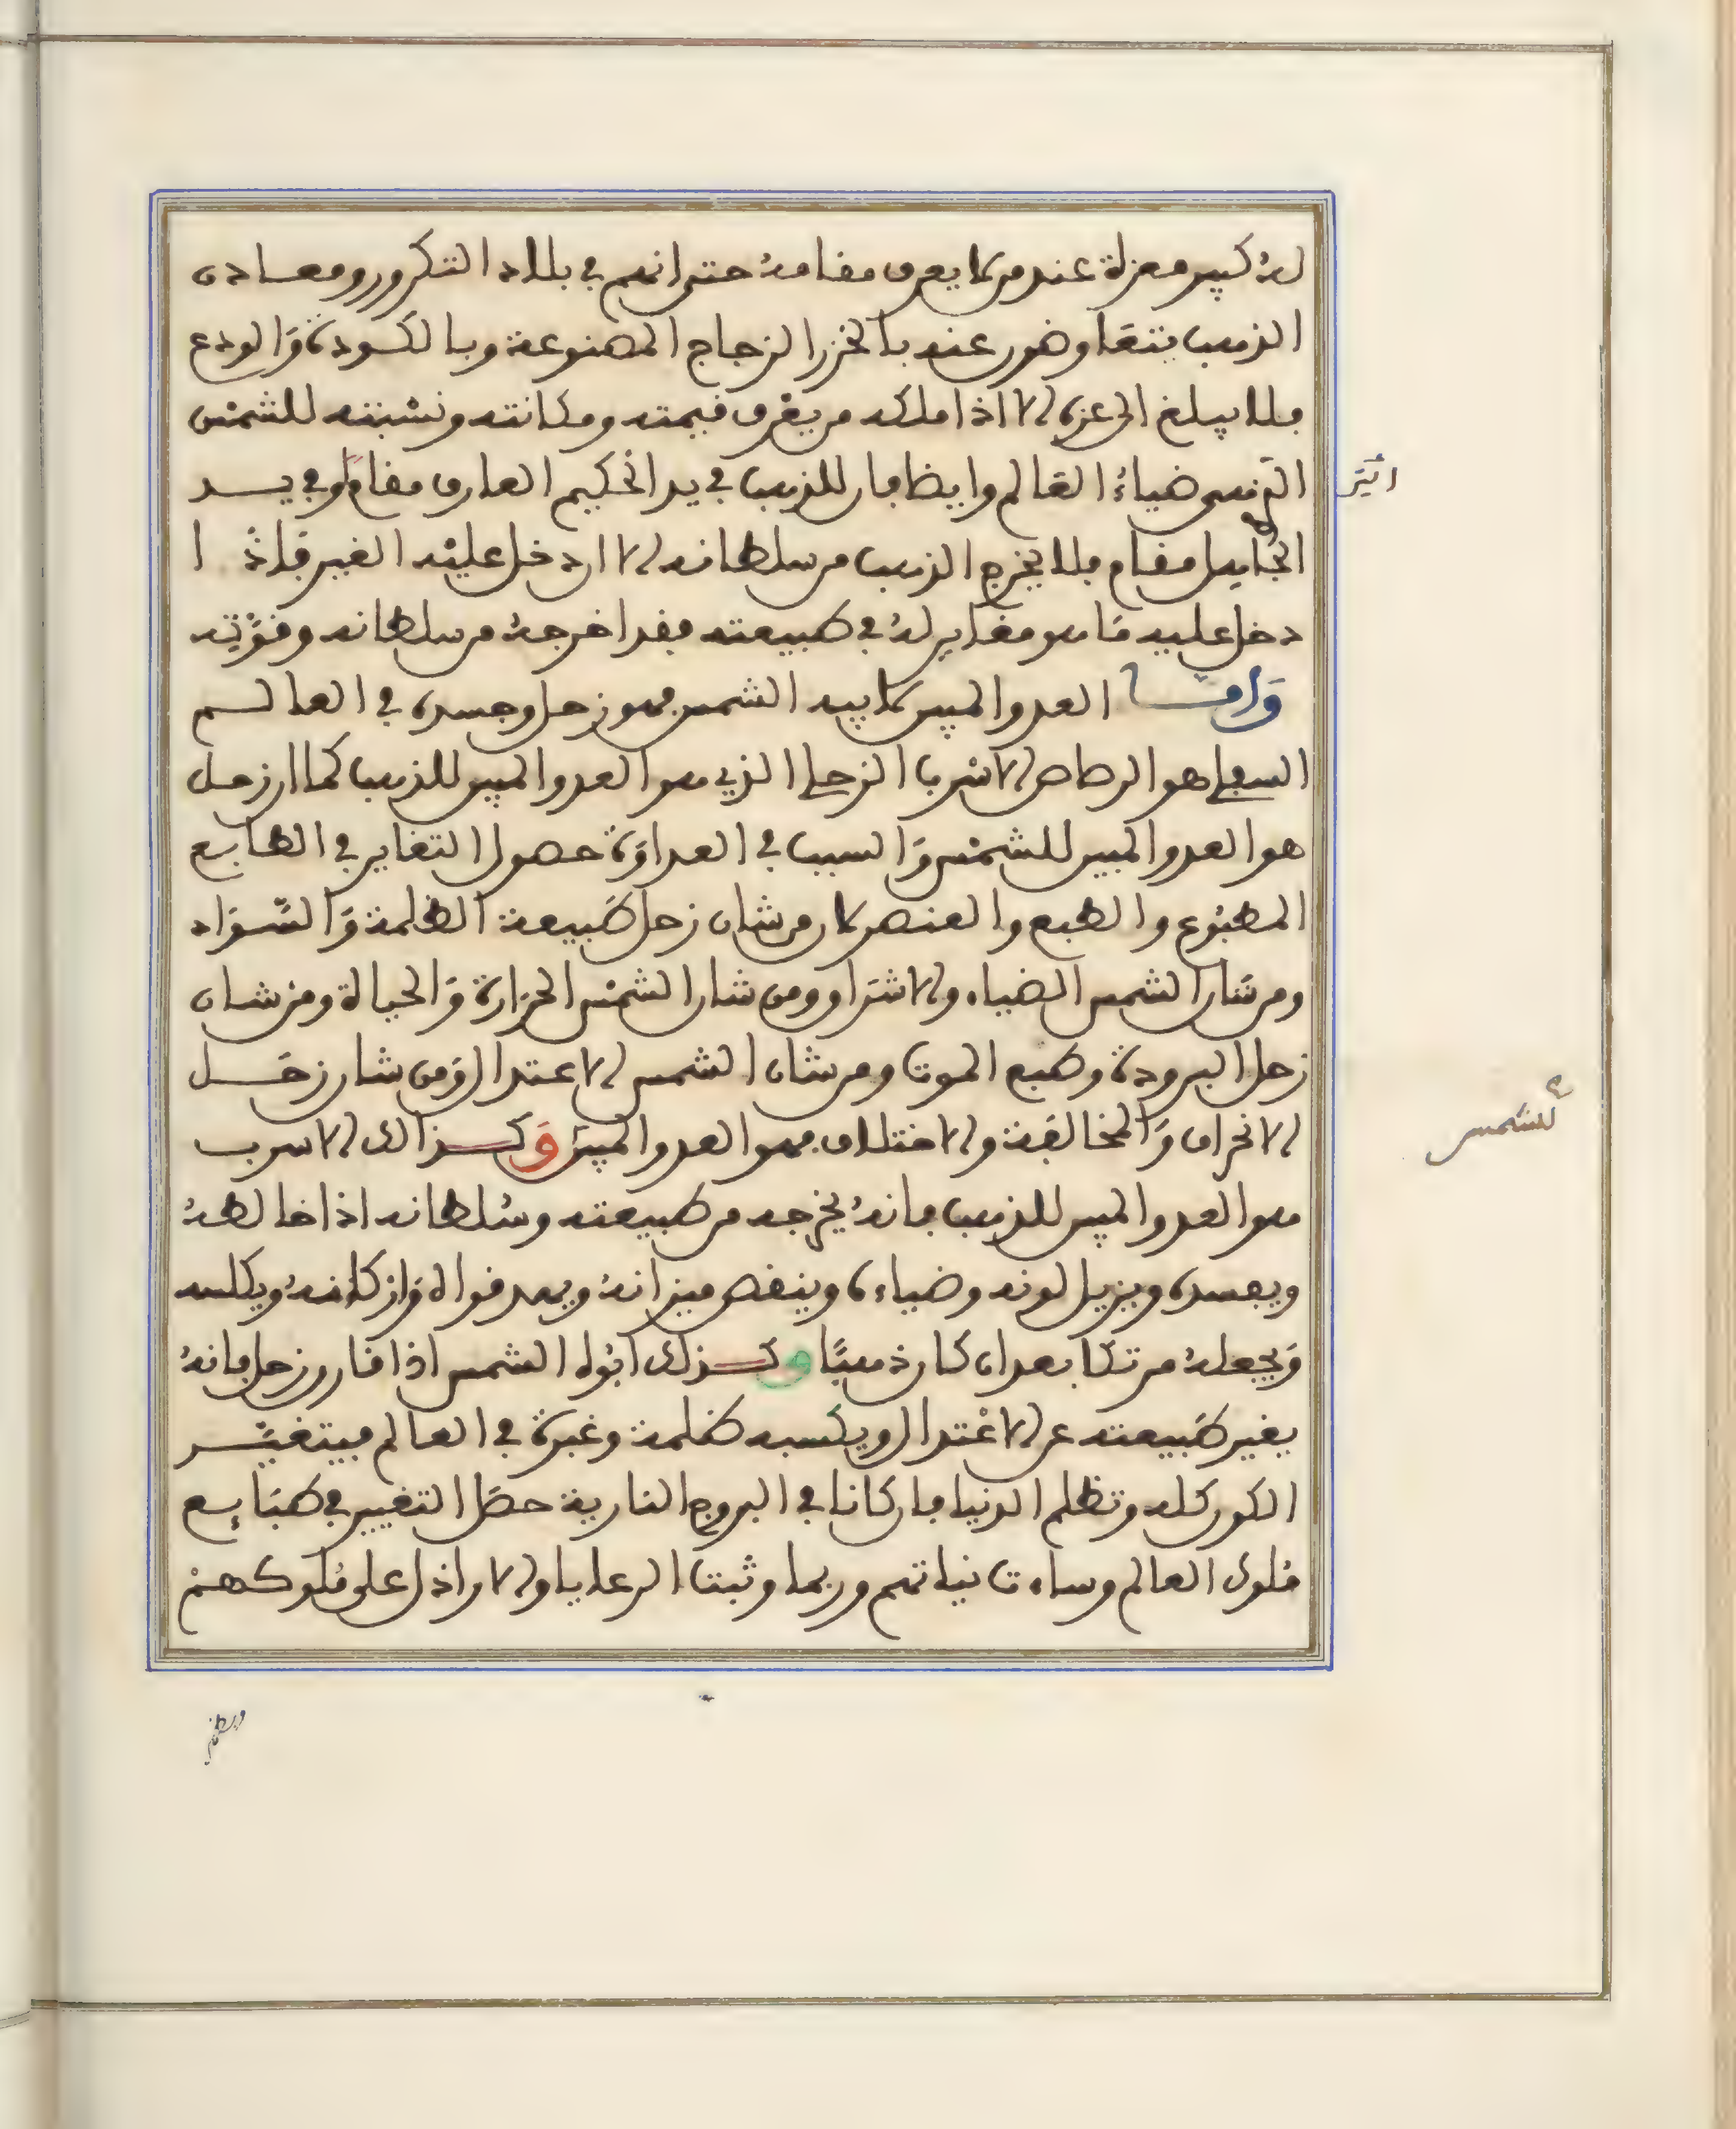 له كبير معزلة عند من لا يعرف مقامه حتى انهم في بلاد التكرور ومعادن
الذهب يتعاوضون عنه بالخرز الزجاج المصنوعة وبالكسودة والودع
فلا يبلغ الى عزه الا اذا ملكه من يعرف قيمته ومكانته ونسبته للشمس
التي هي ضياء العالم وايضا فان للذهب في يد الحكيم العارف مقام وفي يد
الجاهل مقام فلا يخرج الذهب من سلطانه الا ان دخل عليه الغير فاذا
دخل عليه ما هو مغاير له في طبيعته فقد اخرجه من سلطانه وقوته
واما العدو المبين لابيه الشمس فهو زحل وجسده في العالم
السفلي هو الرصاص الاسرب الزحلي الذي هو العدو المبين للذهب كما ان زحل
هو العدو المبين للشمس والسبب في العداوة حصول التغاير في الطابع
المطبوع والطبع والعنصر لان من شان زحل طبيعة الظلمة والسواد
ومن شان الشمس الضياء والاشراق ومن شان الشمس الحرارة والحياة ومن شان
زحل البرودة وطبع الموت ومن شان الشمس الاعتدال ومن شان زحل
الانحراف والمخالفة والاختلاف فهو العدو المبين وكذالك الاسرب
هو العدو المبين للذهب فانه يخرجه من طبيعته وسلطانه اذا خالطه
ويفسده ويزيل لونه وضياءه وينقص ميزانه ويهد قواه واركانه ويكلسه
ويجعله مرتكا بعد ان كان ذهبا وكذلك ابوه الشمس اذا قارن زحل فانه
يغير طبيعته عن الاعتدال ويكسبه ظلمة وغبرة في العالم فيتغير
الكون كله وتظلم الدنيا فان كانا في البروج النارية حصل التغيير في طبايع
ملوك العالم وساءت نياتهم وربما وثبت الرعايا والاراذل على ملوكهم
للشمس